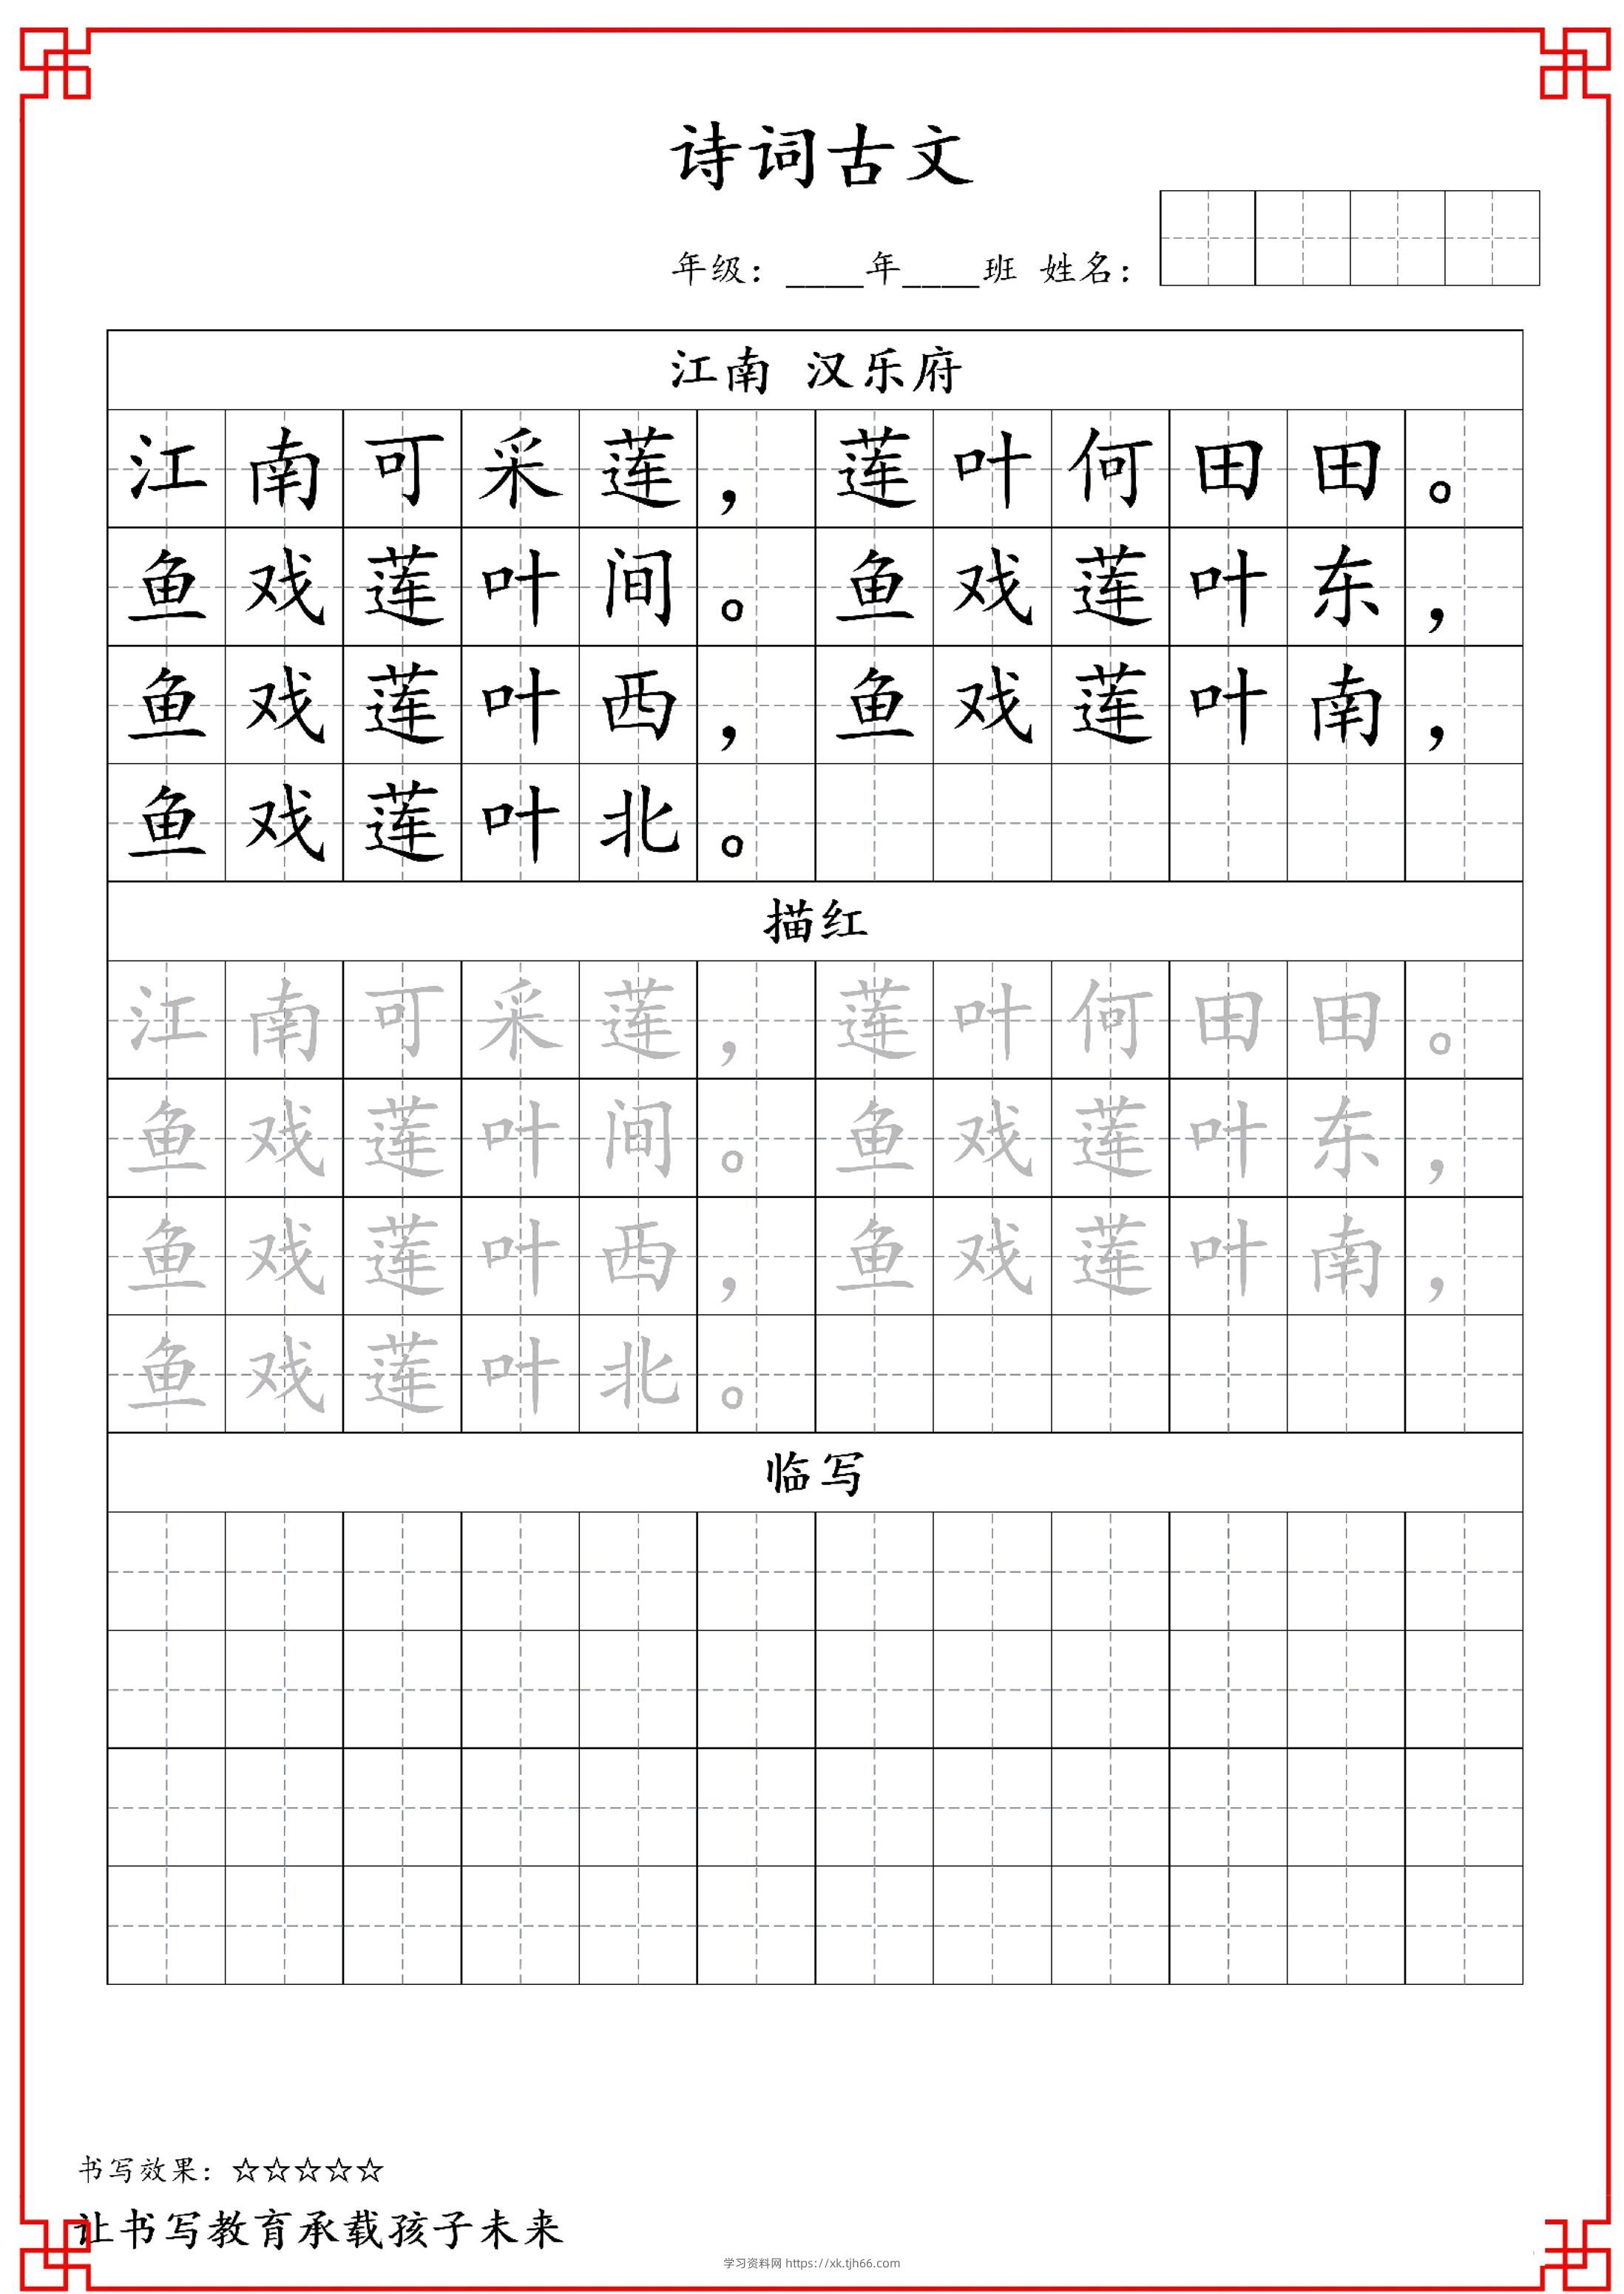 诗词古文
年级：____年____班 姓名：
江南 汉乐府
江南可采莲，莲叶何田田。
鱼戏莲叶间。鱼戏莲叶东，
鱼戏莲叶西，鱼戏莲叶南，
鱼戏莲叶北。
描红
江南可采莲，莲叶何田田。
鱼戏莲叶间。鱼戏莲叶东，
鱼戏莲叶西，鱼戏莲叶南，
鱼戏莲叶北。
临写
书写效果：☆☆☆☆☆
让书写教育承载孩子未来
学习资料网 https://xk.tjh66.com